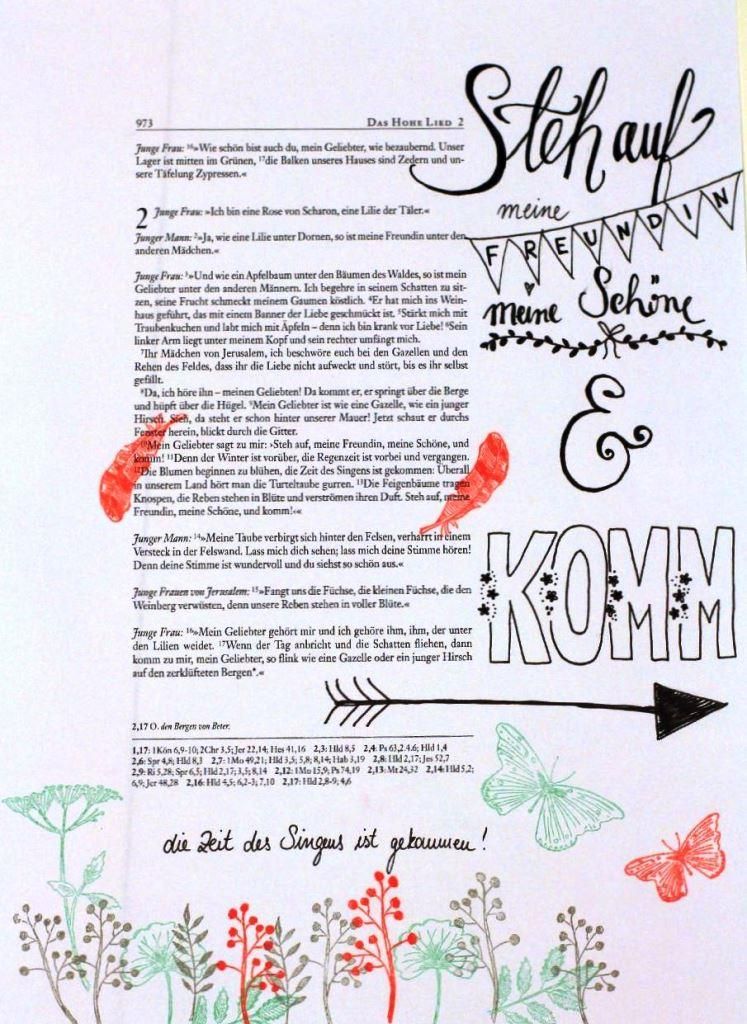 973 DAS HOHE LIED 2
Junge Frau: ¹⁶»Wie schön bist auch du, mein Geliebter, wie bezaubernd. Unser
Lager ist mitten im Grünen, ¹⁷die Balken unseres Hauses sind Zedern und un-
sere Täfelung Zypressen.«
2 Junge Frau: »Ich bin eine Rose von Scharon, eine Lilie der Täler.«
Junger Mann: ²»Ja, wie eine Lilie unter Dornen, so ist meine Freundin unter den
anderen Mädchen.«
Junge Frau: ³»Und wie ein Apfelbaum unter den Bäumen des Waldes, so ist mein
Geliebter unter den anderen Männern. Ich begehre in seinem Schatten zu sit-
zen, seine Frucht schmeckt meinem Gaumen köstlich. ⁴Er hat mich ins Wein-
haus geführt, das mit einem Banner der Liebe geschmückt ist. ⁵Stärkt mich mit
Traubenkuchen und labt mich mit Äpfeln – denn ich bin krank vor Liebe! ⁶Sein
linker Arm liegt unter meinem Kopf und sein rechter umfängt mich.
⁷Ihr Mädchen von Jerusalem, ich beschwöre euch bei den Gazellen und den
Rehen des Feldes, dass ihr die Liebe nicht aufweckt und stört, bis es ihr selbst
gefällt.
⁸Da, ich höre ihn – meinen Geliebten! Da kommt er, er springt über die Berge
und hüpft über die Hügel. ⁹Mein Geliebter ist wie eine Gazelle, wie ein junger
Hirsch. Sieh, da steht er schon hinter unserer Mauer! Jetzt schaut er durchs
Fenster herein, blickt durch die Gitter.
¹⁰Mein Geliebter sagt zu mir: ›Steh auf, meine Freundin, meine Schöne, und
komm! ¹¹Denn der Winter ist vorüber, die Regenzeit ist vorbei und vergangen.
¹²Die Blumen beginnen zu blühen, die Zeit des Singens ist gekommen: Überall
in unserem Land hört man die Turteltaube gurren. ¹³Die Feigenbäume tragen
Knospen, die Reben stehen in Blüte und verströmen ihren Duft. Steh auf, meine
Freundin, meine Schöne, und komm!‹«
Junger Mann: ¹⁴»Meine Taube verbirgt sich hinter den Felsen, verharrt in einem
Versteck in der Felswand. Lass mich dich sehen; lass mich deine Stimme hören!
Denn deine Stimme ist wundervoll und du siehst so schön aus.«
Junge Frauen von Jerusalem: ¹⁵»Fangt uns die Füchse, die kleinen Füchse, die den
Weinberg verwüsten, denn unsere Reben stehen in voller Blüte.«
Junge Frau: ¹⁶»Mein Geliebter gehört mir und ich gehöre ihm, ihm, der unter
den Lilien weidet. ¹⁷Wenn der Tag anbricht und die Schatten fliehen, dann
komm zu mir, mein Geliebter, so flink wie eine Gazelle oter ein junger Hirsch
auf den zerklüfteten Bergen*.«
2,17 O. den Bergen von Beter.
1,17: 1Kön 6,9-10; 2Chr 3,5; Jer 22,14; Hes 41,16 2,3: Hld 8,5 2,4: Ps 63,2.4.6; Hld 1,4
2,6: Spr 4,8; Hld 8,3 2,7: 1Mo 49,21; Hld 3,5; 5,8; 8,14; Hab 3,19 2,8: Hld 2,17; Jes 52,7
2,9: Ri 5,28; Spr 6,5; Hld 2,17; 3,5; 8,14 2,12: 1Mo 15,9; Ps 74,19 2,13: Mt 24,32 2,14: Hld 5,2;
6,9; Jer 48,28 2,16: Hld 4,5; 6,2-3; 7,10 2,17: Hld 2,8-9; 4,6
Steh auf
meine
FREUNDIN
meine Schöne
&
KOMM
die Zeit des Singens ist gekommen!